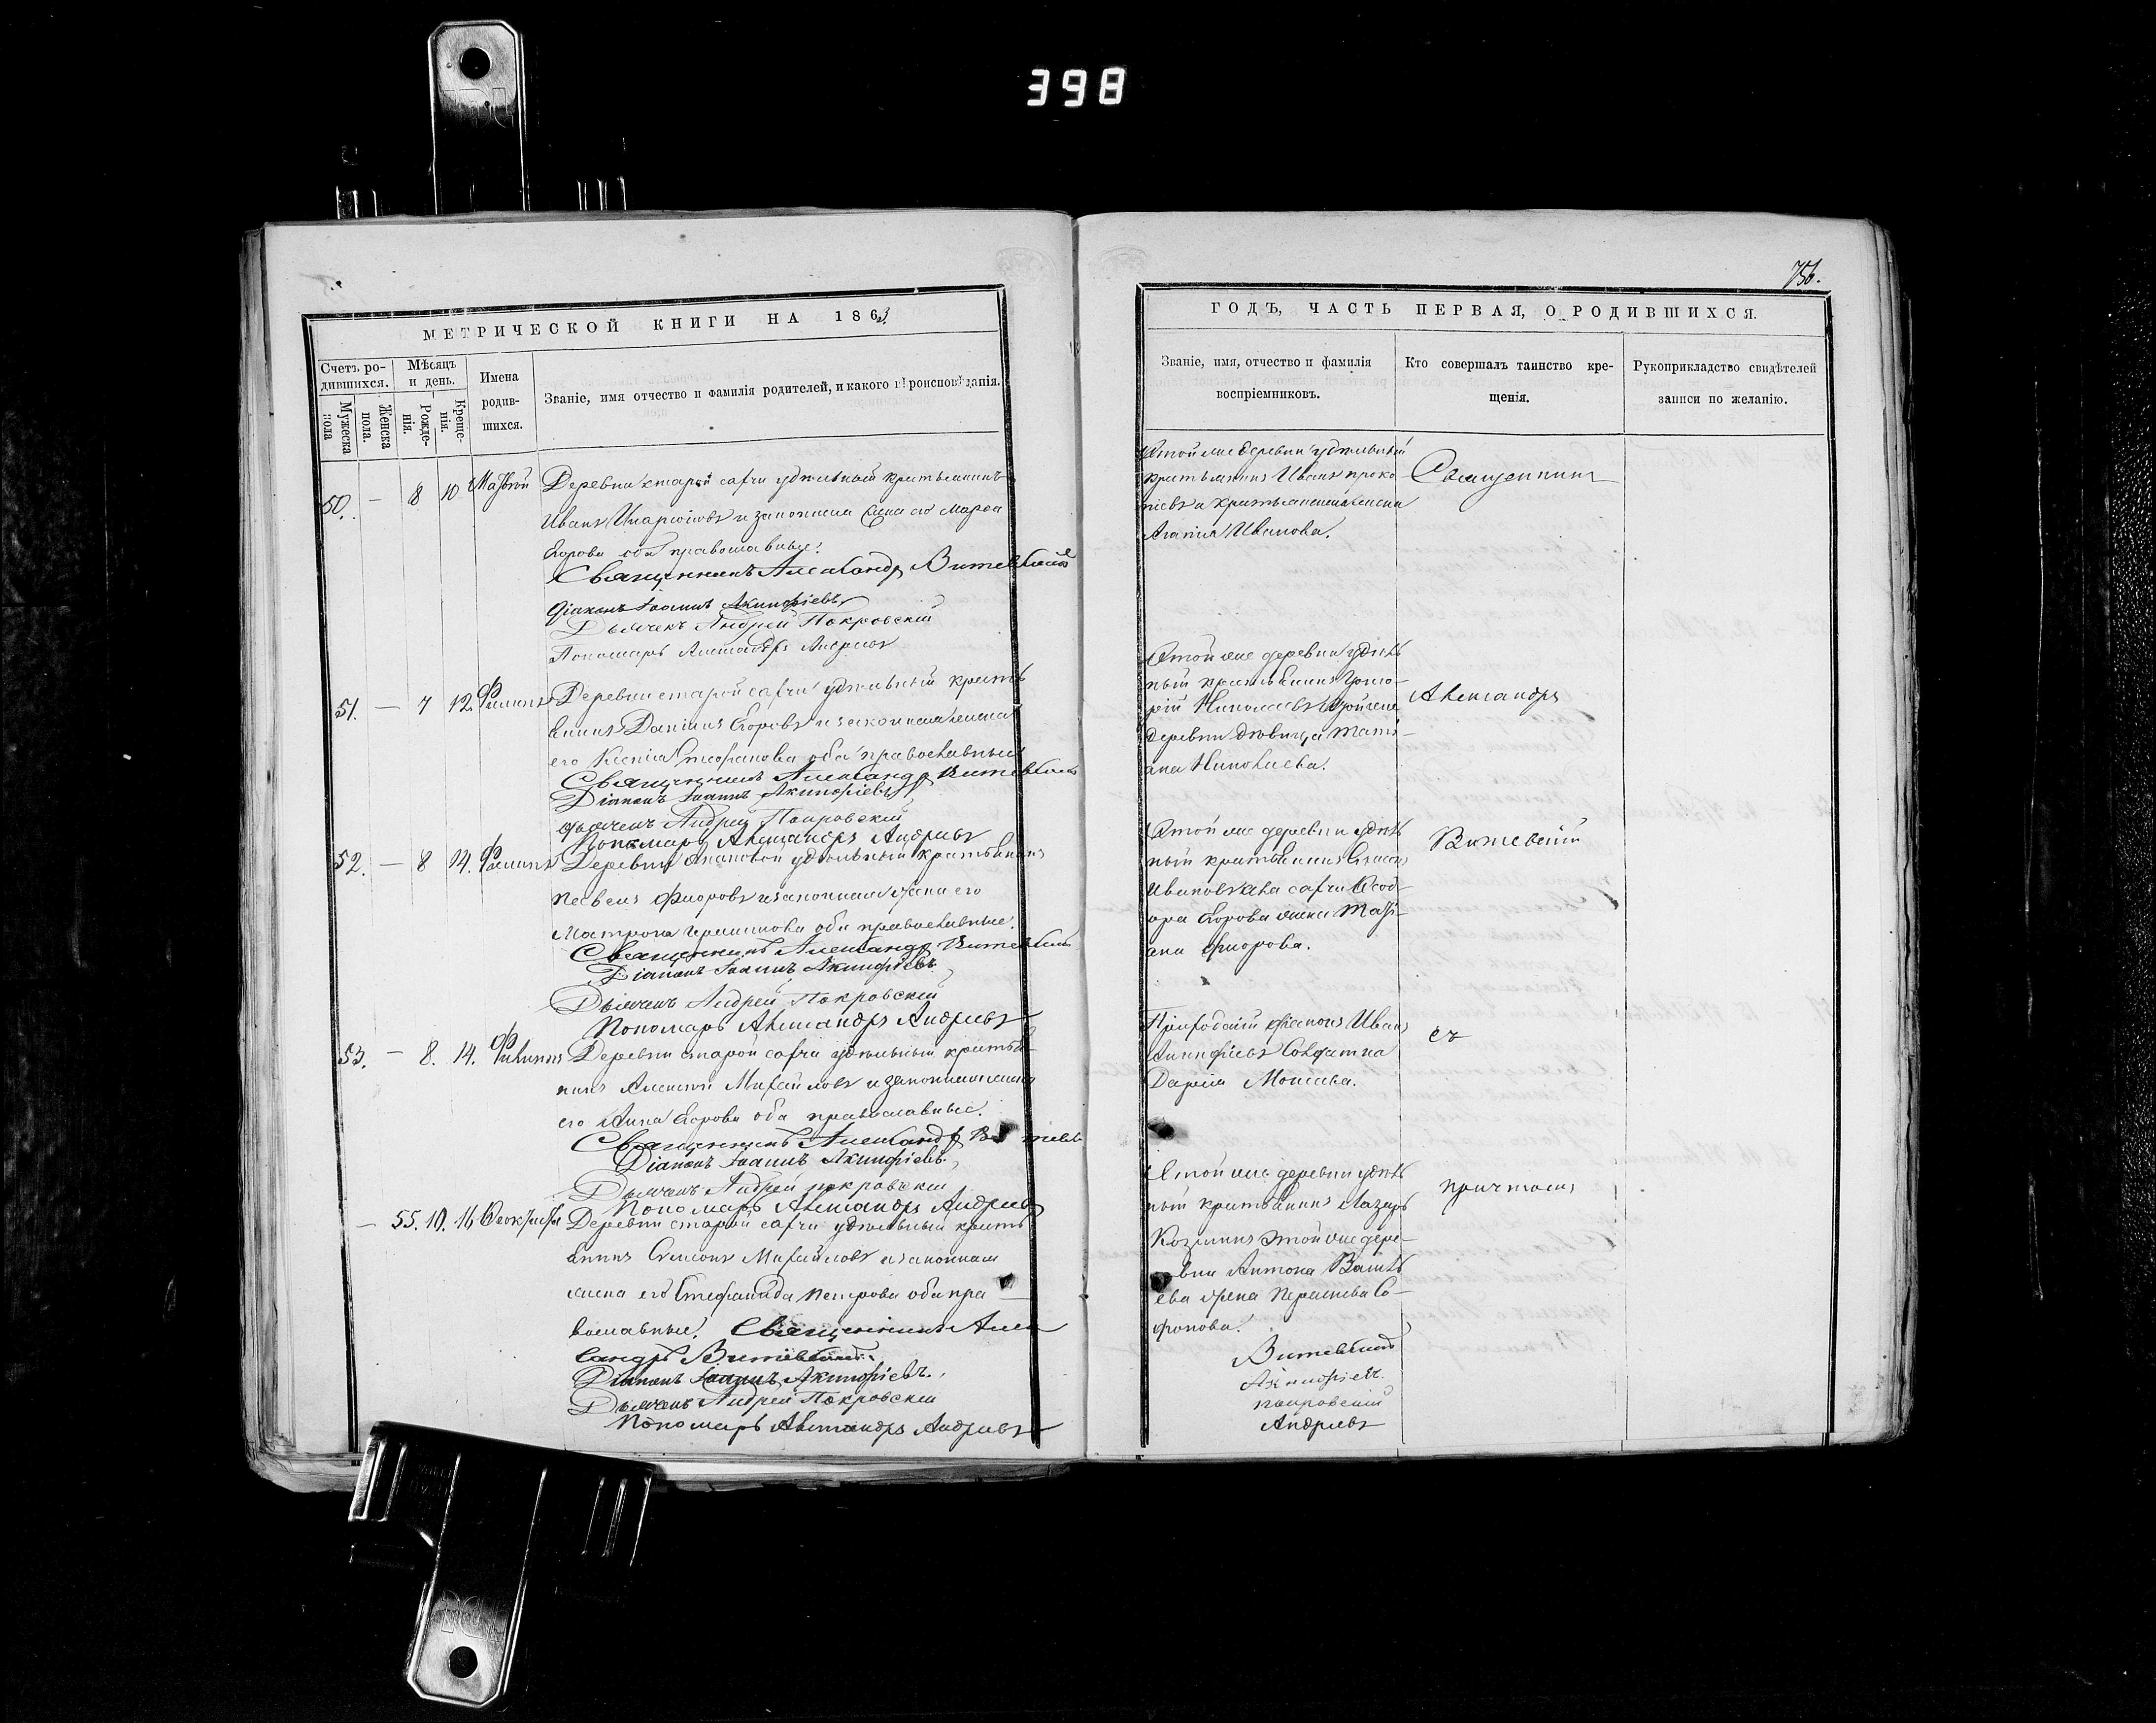 398
756.
МЕТРИЧЕСКОЙ КНИГИ НА 1863
Счетъ ро-
дившихся.
Мужеска
пола
Женска
пола.
Мѣсяцъ
и день.
Рожде-
нія.
Креще-
нія.
Имена
родив-
шихся.
Званіе, имя отчество и фамилія родителей, и какого вѣроисповѣданія.
50. — 8 10
Деревни старой сахчи удѣльный крестьянинъ
Иванъ и законная жена его Марѳа
Егорова оба православные.
Священникъ Александръ Витевскій
Діаконъ Іоаннъ Акинфіевъ
Дьячекъ Андрей Покровскій
Пономарь Александръ Андреевъ
51. — 7 12. Филиппъ
Деревни старой сахчи удѣльный кресть
янинъ Даніилъ Егоровъ и законная жена
его Ксенія Стефанова оба православные
Священникъ Александръ Витевскій
Діаконъ Іоаннъ Акинфіевъ
Дьячекъ Андрей Покровскій
Пономарь Александръ Андреевъ
52. — 8 14. Филиппъ
Деревни удѣльный крестьянинъ
и законная жена его
Матрона оба православные.
Священникъ Александръ Витевскій
Діаконъ Іоаннъ Акинфіевъ
Дьячекъ Андрей Покровскій
Пономарь Александръ Андреевъ
53. — 8. 14. Филиппъ
Деревни старой сахчи удѣльный крестья
нинъ Алексѣй Михайловъ и законная жена
его Анна Егорова оба православные.
Священникъ Александръ Витевск
Діаконъ Іоаннъ Акинфіевъ.
Дьячекъ Андрей покровскій
Пономарь Александръ Андреевъ
— 55. 10. 16 Ѳеоктиста
Деревни старой сахчи удѣльный кресть
янинъ Симеонъ Михайловъ и законная
жена его Стефанида Петрова оба пра
вославные. Священникъ Алек
сандръ Витевскій.
Діаконъ Іоаннъ Акинфіевъ.
Дьячекъ Андрей Покровскій
Пономарь Александръ Андреевъ
ГОДЪ, ЧАСТЬ ПЕРВАЯ, О РОДИВШИХСЯ.
Званіе, имя, отчество и фамилія
воспріемниковъ.
Кто совершалъ таинство кре-
щенія.
Рукоприкладство свидѣтелей
записи по желанію.
Этой же деревни удѣльный
крестьянинъ Иванъ проко
піевъ и крестьянская жена
Агапія Иванова.
Этой же деревни удѣль
ный крестьянинъ Григо-
рій Николаевъ и той же
деревни дѣвица Тати-
ана Николаева.
Этой же деревни удѣль
ный крестьянинъ
сахчи Ѳеод-
ора Егорова жена Тати-
ана
Приходскій діаконъ Иванъ
Акинфіевъ Солдатка
Дарья
Этой же деревни удѣль
ный крестьянинъ Лазарь
Козминъ этой же дере-
вни Антона Василь
ева жена
Витевскій
Акинфіевъ.
покровскій
Андреевъ
Священникъ
Александръ
Витевскій
съ
причтомъ